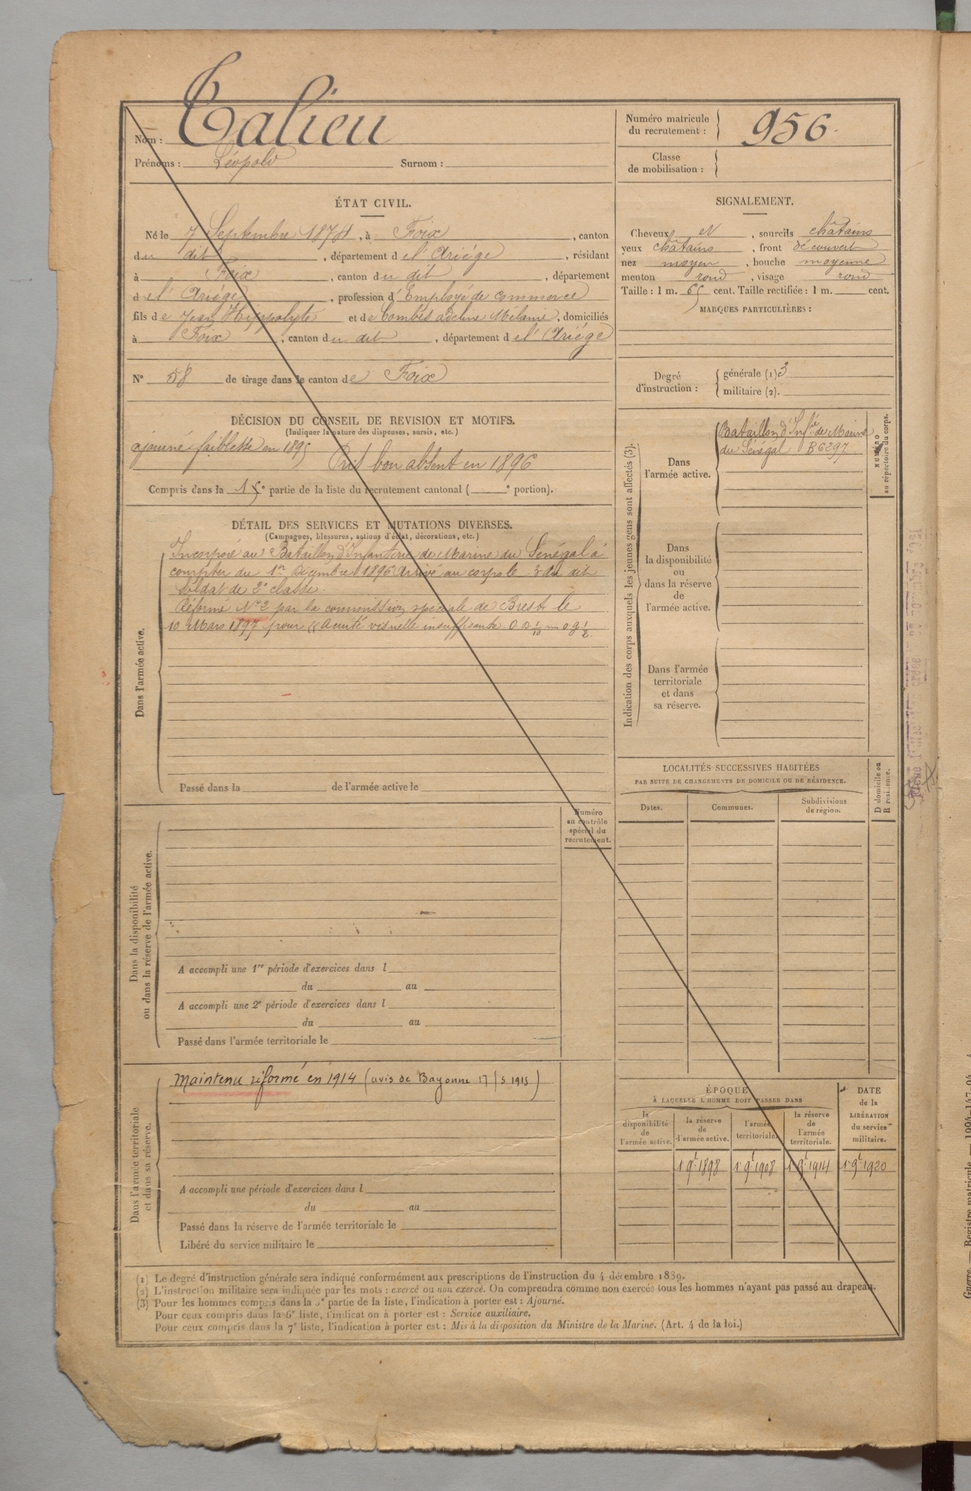 Nom : Talieu
Prénoms : Léopold Surnom :
Numéro matricule du recrutement : 956
Classe de mobilisation :
ÉTAT CIVIL.
Né le 7 Septembre 1874, à Foix, canton
du dit, département de l'Ariège, résidant
à Foix, canton du dit, département
de l'Ariége, profession d'Employé de commerce
fils de Jean Hippolyte et de Combes Adeline Mélanie, domiciliés
à Foix, canton du dit, département de l'Ariége
N° 58 de tirage dans le canton de Foix
SIGNALEMENT.
Cheveux N, sourcils châtains
yeux châtains, front découvert
nez moyen, bouche moyenne
menton rond, visage rond
Taille : 1 m. 65 cent. Taille rectifiée : 1 m. cent.
MARQUES PARTICULIÈRES :
Degré d'instruction : générale (1) 3
militaire (2).
DÉCISION DU CONSEIL DE REVISION ET MOTIFS.
(Indiquer la nature des dispenses, sursis, etc.)
ajourné faiblesse en 1895 Pris bon absent en 1896
Compris dans la partie de la liste du recrutement cantonal ( e portion).
DÉTAIL DES SERVICES ET MUTATIONS DIVERSES.
(Campagnes, blessures, actions d'éclat, décorations, etc.)
Dans l'armée active.
Incorporé au Bataillon d'Infanterie de Marine du Sénégal à
compter du 1er Décembre 1896 Arrivé au corps le 3 du dit
Soldat de 2e classe.
Réformé N° 2 par la commission spéciale de Brest le
10 Mars 1897 pour "Acuité visuelle insuffisante
Passé dans la de l'armée active le
Indication des corps auxquels les jeunes gens sont affectés (3).
Dans l'armée active.
Bataillon d'Infie de Marine
du Sénégal B6297
NUMÉRO au répertoire du corps.
Dans la disponibilité ou dans la réserve de l'armée active.
Dans l'armée territoriale et dans sa réserve.
LOCALITÉS SUCCESSIVES HABITÉES
PAR SUITE DE CHANGEMENTS DE DOMICILE OU DE RÉSIDENCE.
Dates. Communes. Subdivisions de région. D domicile ou R résidence.
Dans la disponibilité ou dans la réserve de l'armée active.
Numéro au contrôle spécial du recrutement.
A accompli une 1re période d'exercices dans l
du au
A accompli une 2e période d'exercices dans l
du au
Passé dans l'armée territoriale le
Dans l'armée territoriale et dans sa réserve.
Maintenu réformé en 1914 (avis de Bayonne 17/5 1915)
A accompli une période d'exercices dans l
du au
Passé dans la réserve de l'armée territoriale le
Libéré du service militaire le
ÉPOQUE
À LAQUELLE L'HOMME DOIT PASSER DANS
la disponibilité de l'armée active. la réserve de l'armée active. l'armée territoriale. la réserve de l'armée territoriale.
DATE de la LIBÉRATION du service militaire.
1 9t 1898 1 9t 1908 1 9t 1914 1 9t 1920
(1) Le degré d'instruction générale sera indiqué conformément aux prescriptions de l'instruction du 4 décembre 1889.
(2) L'instruction militaire sera indiquée par les mots : exercé ou non exercé. On comprendra comme non exercés tous les hommes n'ayant pas passé au drapeau.
(3) Pour les hommes compris dans la 5e partie de la liste, l'indication à porter est : Ajourné.
Pour ceux compris dans la 6e liste, l'indication à porter est : Service auxiliaire.
Pour ceux compris dans la 7e liste, l'indication à porter est : Mis à la disposition du Ministre de la Marine. (Art. 4 de la loi.)